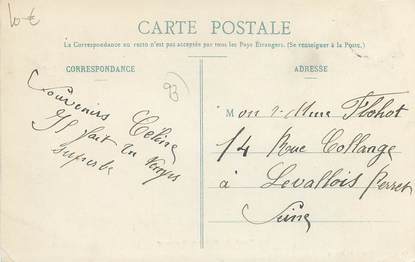 10 €
CARTE POSTALE
La Correspondance au recto n'est pas acceptée par tous les Pays Étrangers. (Se renseigner à la Poste.)
CORRESPONDANCE
ADRESSE
93
Souvenirs
Celine
Il fait un temps
superbe
Mon & Mme Flohot
14 Rue Collange
à Levallois Perret
Seine